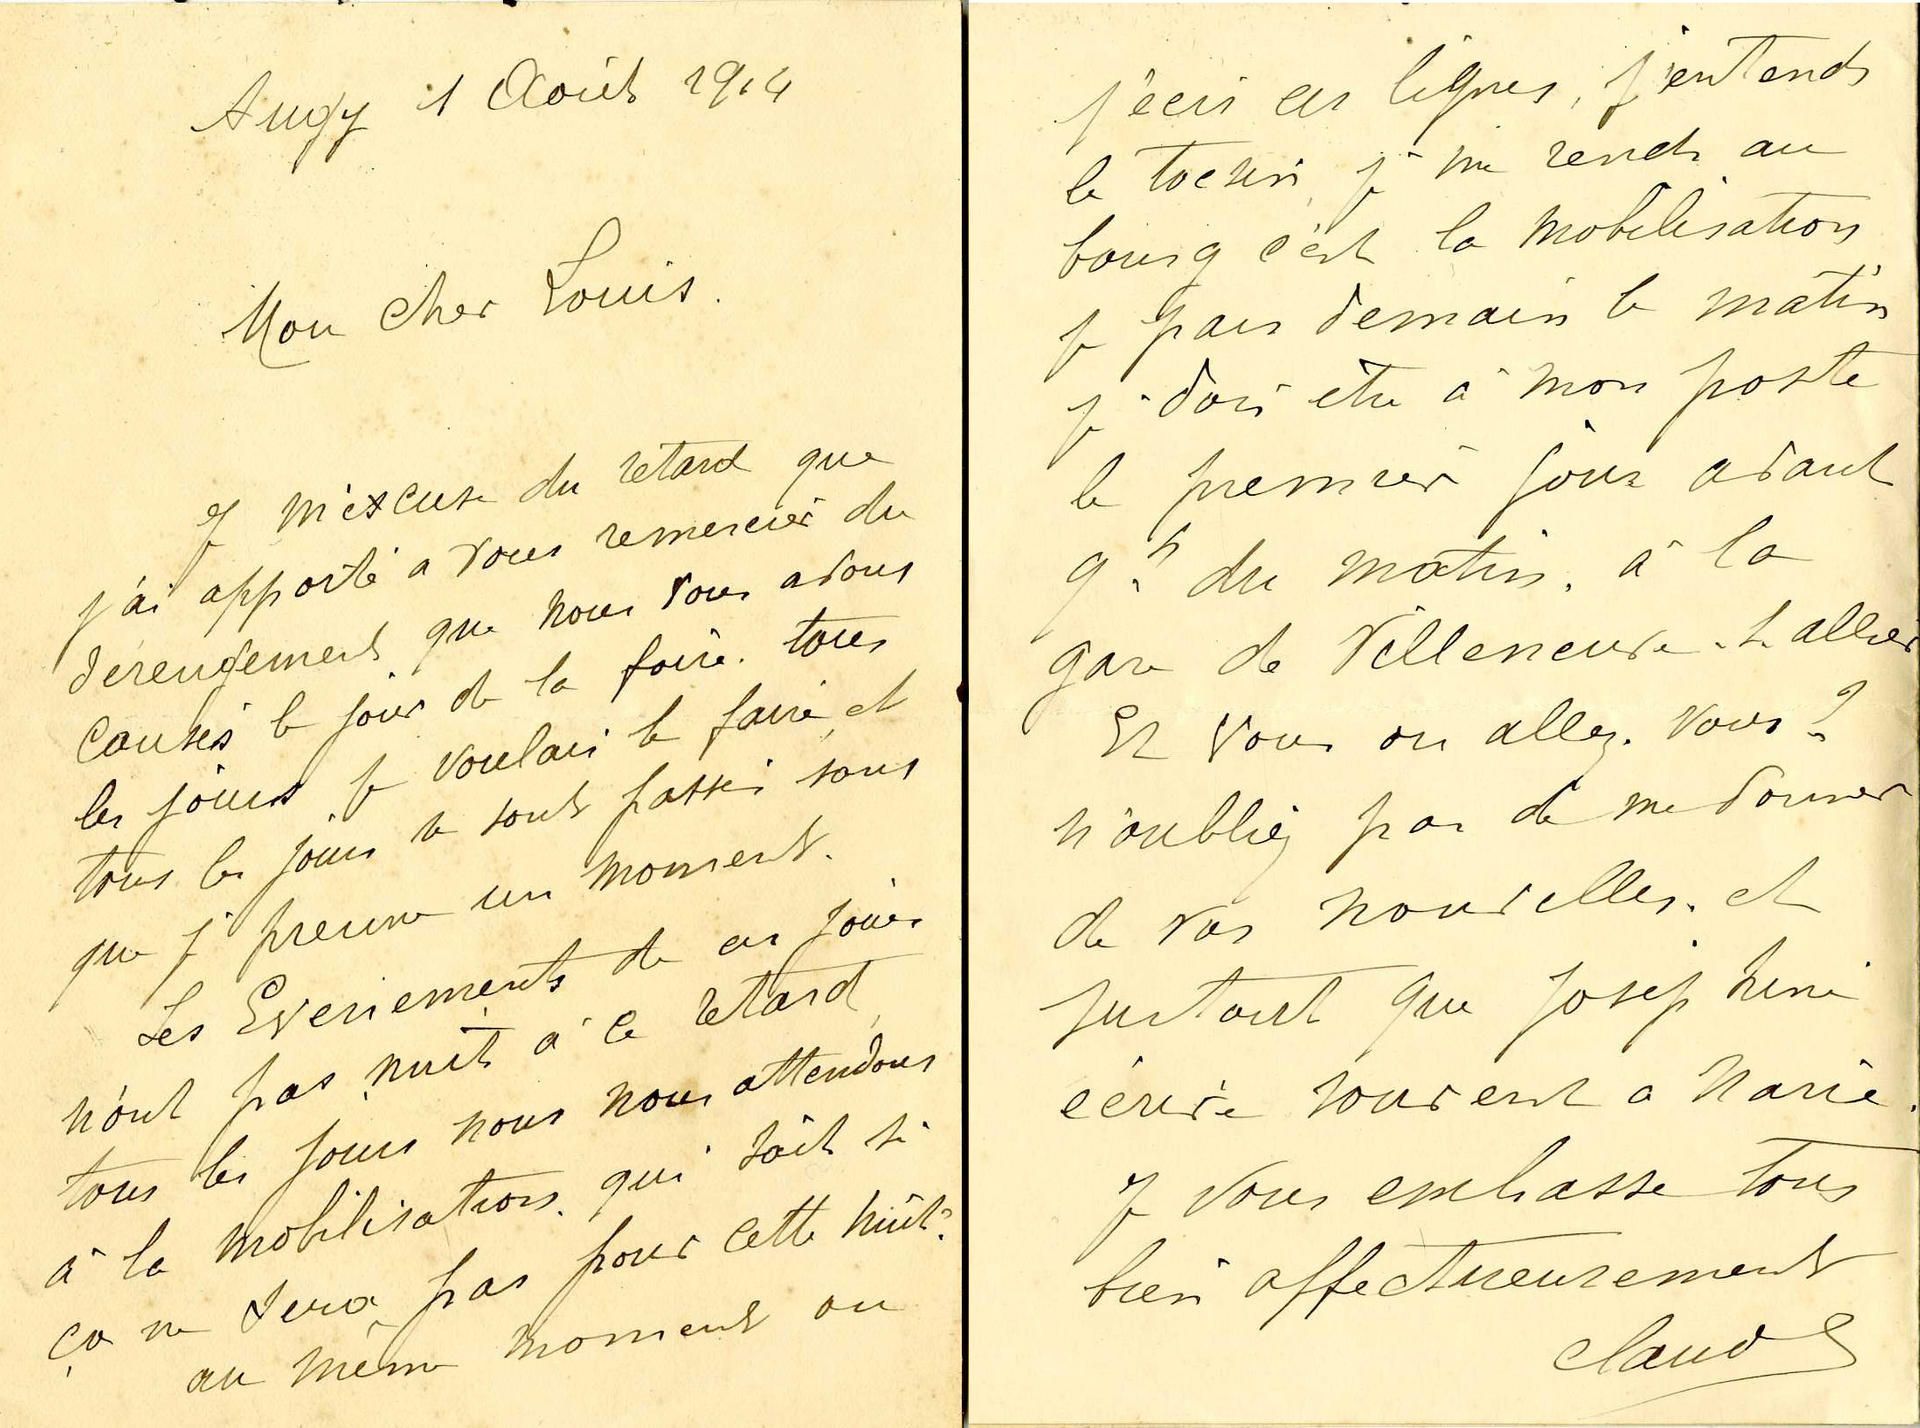 Augy 1 Août 1914
Mon Cher Louis.
Je m'éxcuse du retard que
j'ai apporté a vous remercier du
derengement que nous vous avons
causés le jour de la foire. tous
les jours je voulais le faire, et
tous les jours se sont passés sans
que je prenne un moment.
Les Evenements de ces jours
n'ont pas nuit à ce retard,
tous les jours nous nous attendons
à la mobilisation. qui sait si
ça ne sera pas pour cette nuit?
au même moment ou
j'écris ces lignes, j'entends
le tocsin, je me rends au
bourg c'est la mobilisation
je pars demain le matin
je dois être à mon poste
le premier jour avant
9h du matin. à la
gare de Villeneuve-s-allier
Et vous ou allez-vous?
n'oubliez pas de me donner
de vos nouvelles. et
surtout que Josephine
écrive souvent a Marie.
Je vous embrasse tous
bien affectueusement
Claude